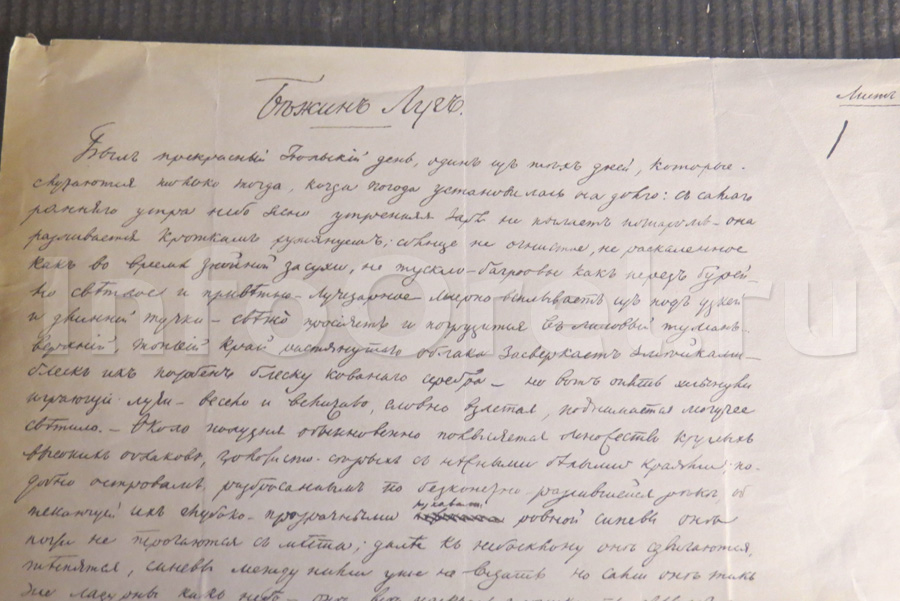 Бѣжинъ Лугъ.
Листъ
1
Былъ прекрасный Iюльскiй день, одинъ изъ тѣхъ дней, которые
случаются только тогда, когда погода установилась на долго: съ самаго
ранняго утра небо ясно утренняя заря не пылаетъ пожаромъ – она
разливается кроткимъ румянцемъ; солнце не огнистое, не раскаленное
какъ во время знойной засухи, не тускло-багровое какъ передъ бурей –
но свѣтлое и привѣтно-лучезарное – мирно всплываетъ изъ подъ узкой
и длинной тучки – свѣжо просiяетъ и погрузится въ лиловый туманъ –
верхнiй, тонкiй край растянутаго облака засверкаетъ змѣйками –
блескъ ихъ подобенъ блеску кованаго серебра – но вотъ опять хлынули
играющiй лучи – весело и величаво, словно взлетая, поднимается могучее
свѣтило. – Около полудня обыкновенно появляется множество круглыхъ
высокихъ облаковъ, золотисто-сѣрыхъ съ нѣжными бѣлыми краями; по-
добно островамъ, разбросаннымъ по безконечно разлившейся рѣкѣ об
текающей ихъ глубоко-прозрачными рукавами ровной синевы онѣ
почти не трогаются съ мѣста; далѣе къ небосклону онѣ сдвигаются,
тѣснятся, синевы между ними уже не видать но сами онѣ такъ
же лазурны какъ небо – онѣ всѣ
InSales.ru